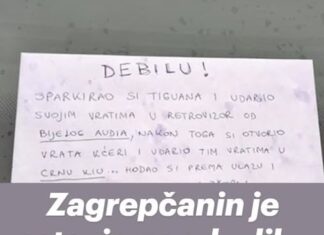 DEBILU!
SPARKIRAO SI TIGUANA I UDARIO
SVOJIM VRATIMA U RETROVIZOR OD
BIJELOG AUDIA, NAKON TOGA SI OTVORIO
VRATA KĆERI I UDARIO TIM VRATIMA U
CRNU KIU... HODAO SI PREMA ULAZU I
Zagrepčanin je